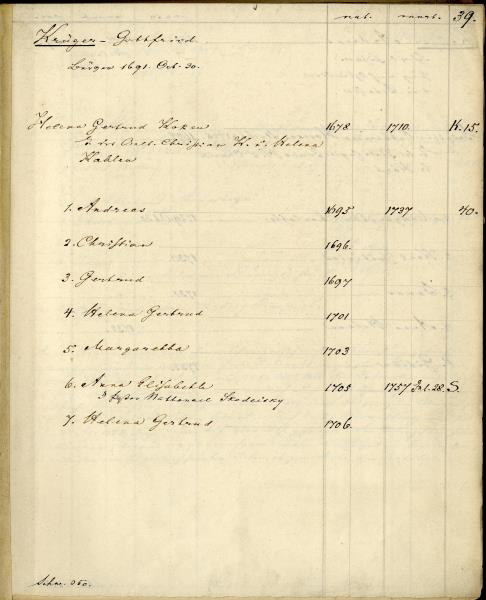 nat. mort. 39.
Krüger - Gottfried.
Bürger 1691. Oct. 30.
Helena Gertrud Koken 1678. 1710. K. 15.
Christian K. u. Helena
Kahlen
1. Andreas 1695 1737 40.
2. Christian 1696.
3. Gertrud 1697
4. Helena Gertrud 1701
5. Margaretha 1703
6. Anna Elisabeth 1705 1757 Jul. 28. S.
Nathanael
7. Helena Gertrud 1706.